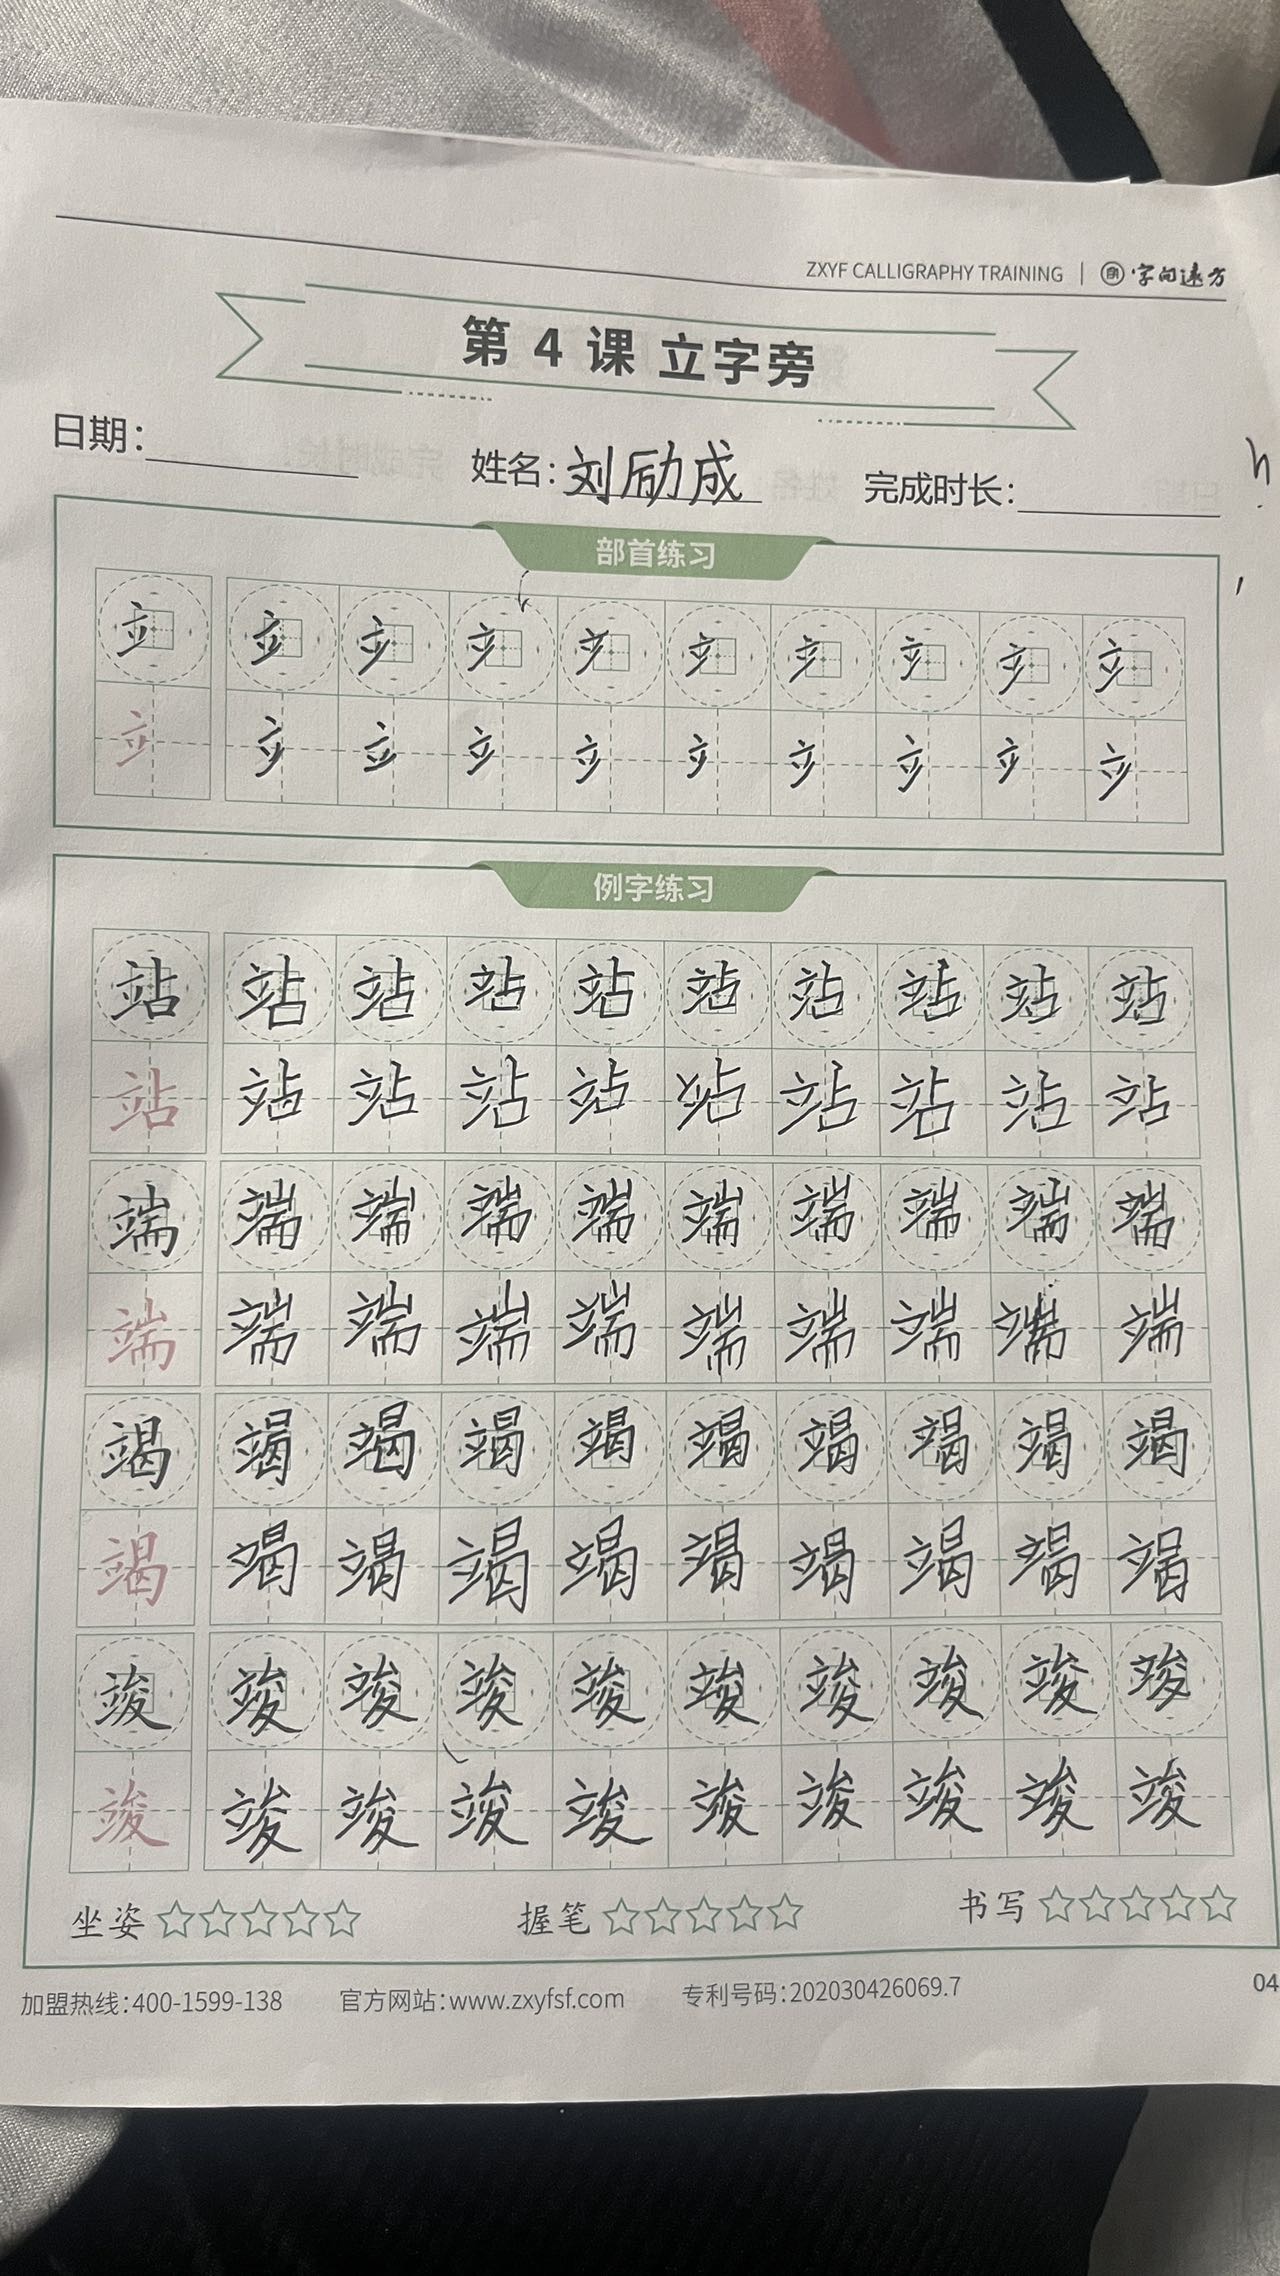 ZXYF CALLIGRAPHY TRAINING | 字向远方
第 4 课 立字旁
日期： 姓名：刘励成 完成时长：
部首练习
立 立 立 立 立 立 立 立 立 立
立 立 立 立 立 立 立 立 立 立
例字练习
站 站 站 站 站 站 站 站 站 站
站 站 站 站 站 站 站 站 站 站
端 端 端 端 端 端 端 端 端 端
端 端 端 端 端 端 端 端 端 端
竭 竭 竭 竭 竭 竭 竭 竭 竭 竭
竭 竭 竭 竭 竭 竭 竭 竭 竭 竭
竣 竣 竣 竣 竣 竣 竣 竣 竣 竣
竣 竣 竣 竣 竣 竣 竣 竣 竣 竣
坐姿 ☆☆☆☆☆ 握笔 ☆☆☆☆☆ 书写 ☆☆☆☆☆
加盟热线：400-1599-138 官方网站：www.zxyfsf.com 专利号码：202030426069.7 04